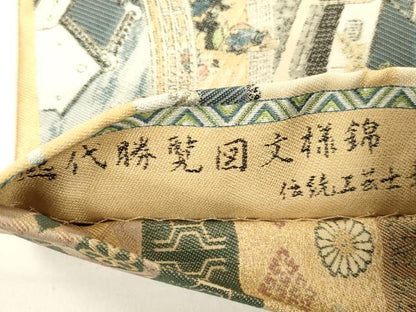 代勝覧図文様錦
伝統工芸士